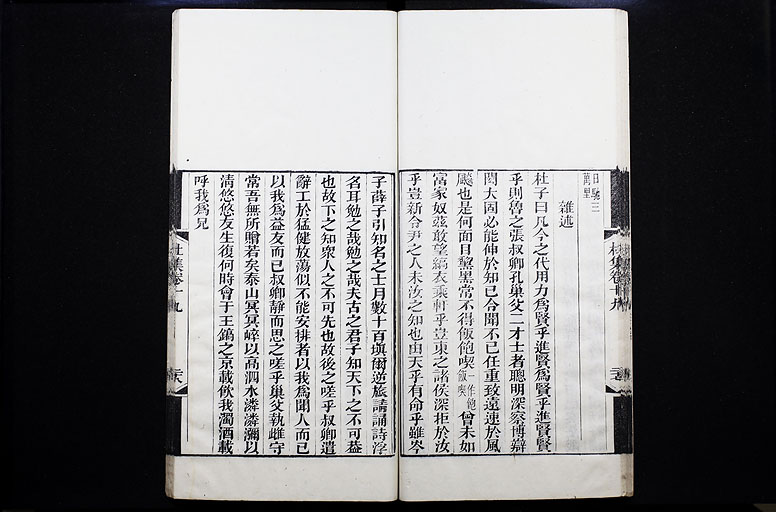 日馳三
萬里
雜述
杜子曰凡今之代用力爲賢乎進賢爲賢乎進賢賢
乎則魯之張叔卿孔巢父二才士者聰明深察博辯
閎大固必能伸於知己令聞不已任重致遠速於風
飈也是何面目黧黑常不得飯飽喫一作飽飯喫曾未如
富家奴茲敢望縞衣乘軒乎豈東之諸侯深拒於汝
乎豈新令尹之人未汝之知也由天乎有命乎雖岑
子薛子引知名之士月數十百塡爾逆旅請誦詩浮
名耳勉之哉勉之哉夫古之君子知天下之不可葢
也故下之知衆人之不可先也故後之嗟乎叔卿遣
辭工於猛健放蕩似不能安排者以我爲聞人而已
以我爲益友而已叔卿靜而思之嗟乎巢父執雌守
常吾無所贈若矣泰山冥冥崒以高泗水潾潾瀰以
清悠悠友生復何時會于王鎬之京載飲我濁酒載
呼我爲兄
杜集卷十九